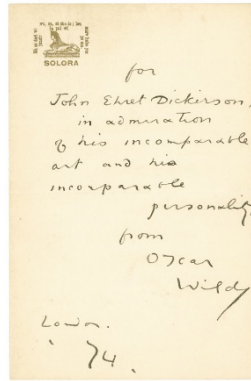 SOLORA
for
John Ehret Dickerson,
in admiration
of his incomparable
art and his
incorparable
personality
from
Oscar
Wild
London.
'94.